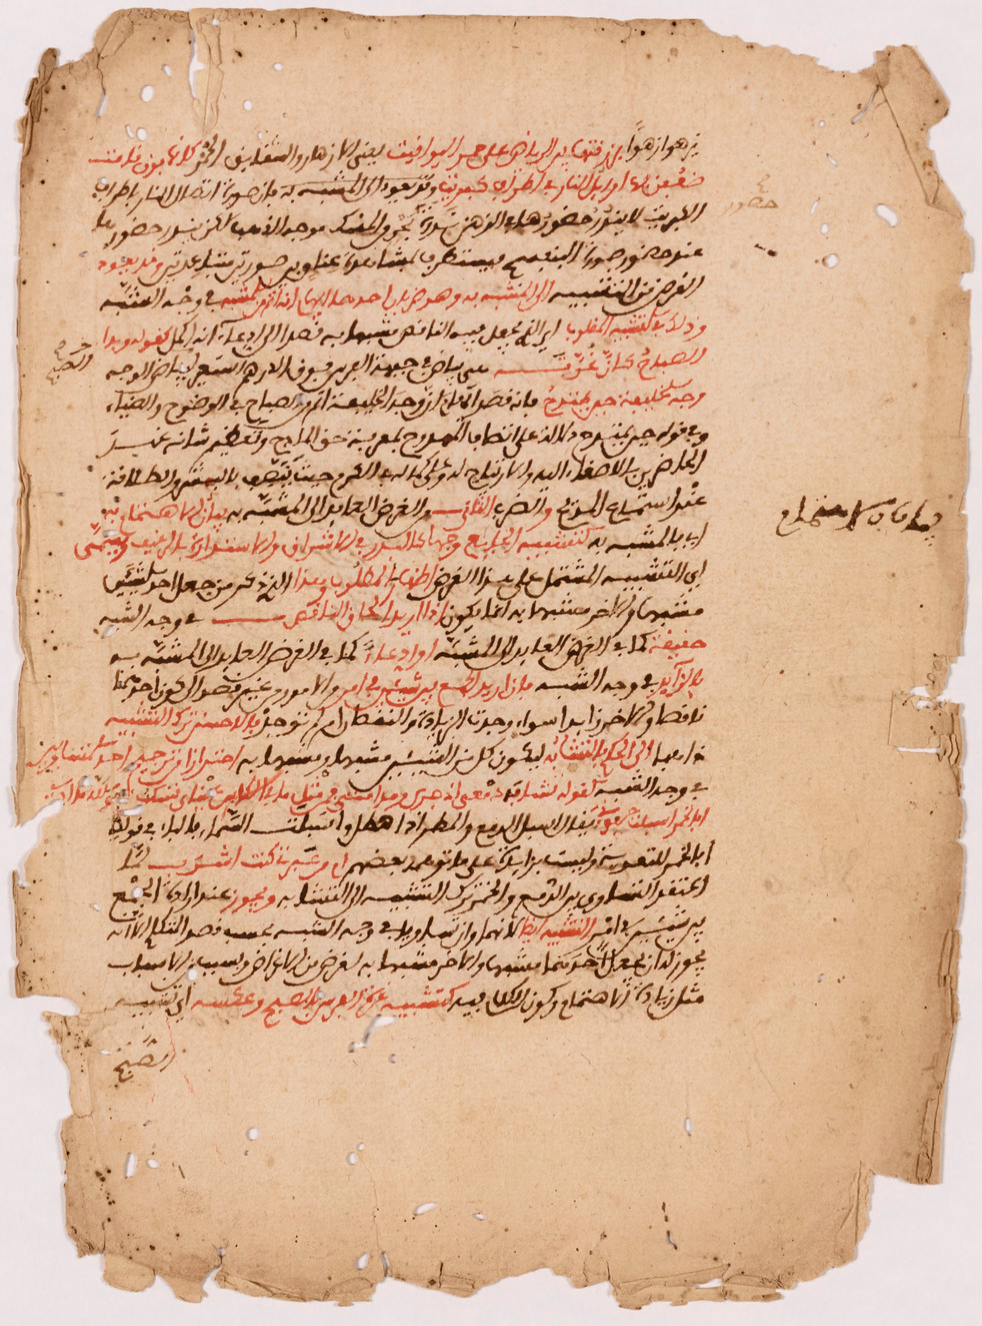 يزهو ازهوًا بزرقتها بين الرياض على حمر اليواقيت يعنى الازهار والشقايق الحمر كانها فوق قامات
ضعفن بها اوايل النار في اطراف كبريت فان صورة اتصال النار باطراف
الكبريت لا يندر حضورها في الذهن ندرة بحر من المسك موجه الذهب لكن يندر حضورها
عند حضور صورة البنفسج فيستطرف لمشاهدة عناق بين صورتين متباعدتين وقد يعود
الغرض من التشبيه الى المشبه به وهو ضربان احدهما ايهام انه اتم من المشبه في وجه التشبيه
وذلك في التشبيه المقلوب الذي يجعل فيه الناقص مشبها به قصدا الى ادعاء انه اكمل كقوله وبدا
الصباح كانّ غُرّتَـه هى بياض في جبهة الفرس فوق الدرهم استعير لبياض الوجه
وجه الخليفة حين يمتدح فانه قصد ايهام ان وجه الخليفة اتم من الصباح في الوضوح والضياء
وفي قوله حين يمتدح دلالة على اتصاف الممدوح بمعرفة حق المادح وتعظيم شانه عند
الحاضرين بالاصغاء اليه والارتياح له وعلى كماله في الكرم حيث يتصف بالبشر والطلاقة
عند استماع المديح والضرب الثاني من الغرض العايد الى المشبه به بيان الاهتمام به
اي بالمشبه به كتشبيه الجايع وجها كالبدر في الاشراق والاستدارة بالرغيف ويسمى
اي التشبيه المشتمل على هذا الغرض اظهار المطلوب هذا الذي ذكر من جعل احد الشيئين
مشبها والاخر مشبها به انما يكون اذا اريد الحاق الناقص في وجه الشبه
حقيقة كما في الغرض العايد الى المشبه او ادعاءً كما في الغرض العايد الى المشبه به
بالزايد في وجه الشبه فان اريد الجمع بين شيئين في امر من الامور من غير قصد الى كون احدهما
ناقصا والاخر زايدا سواء وجدت الزيادة والنقصان ام لم توجد فالاحسن ترك التشبيه
ذاهبا الى الحكم بالتشابه ليكون كل من الشيئين مشبها ومشبها به احترازا من ترجيح احد المتساويين
في وجه الشبه كقوله تشابه دمعي اذ جرى ومدامتي فمن مثل ما في الكاس عيني تسكب
ابالخمر اسبلت جفوني يقال اسبل الدمع والمطر اذا هطل واسبلت السماء بالباء في قوله
ابالخمر للتعدية وليست بزايدة على ما توهمه بعضهم ام من عبرتي كنت اشرب لمّا
اعتقد التساوي بين الدمع والخمر ترك التشبيه الى التشابه ويجوز عند ارادة الجمع
بين شيئين في امر التشبيه ايضا لانهما وان تساويا في وجه الشبه بحسب قصد المتكلم الا انه
يجوز له ان يجعل احدهما مشبها والاخر مشبها به لغرض من الاغراض وسبب من الاسباب
مثل زيادة الاهتمام وكون الكلام فيه كتشبيه غرة الفرس بالصبح وعكسه اي تشبيه
الصبح